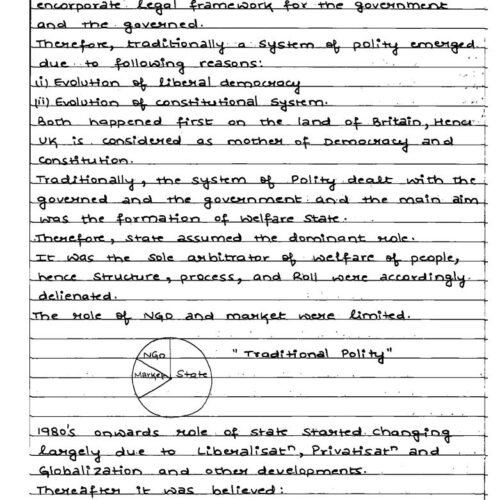 encorporate legal framework for the government
and the governed.
Therefore, traditionally a system of polity emerged
due to following reasons:
(i) Evolution of liberal democracy
(ii) Evolution of constitutional System.
Both happened first on the land of Britain, Hence
UK is considered as mother of Democracy and
constitution.
Traditionally, the system of Polity dealt with the
governed and the government and the main aim
was the formation of welfare State.
Therefore, State assumed the dominant role.
It was the sole arbitrator of welfare of people,
hence Structure, process, and Roll were accordingly
delienated.
The role of NGO and market were limited.
NGO
Market
State
"Traditional Polity"
1980's onwards role of state started changing
largely due to Liberalisatⁿ, Privatisatⁿ and
Globalization and other developments.
Thereafter it was believed: